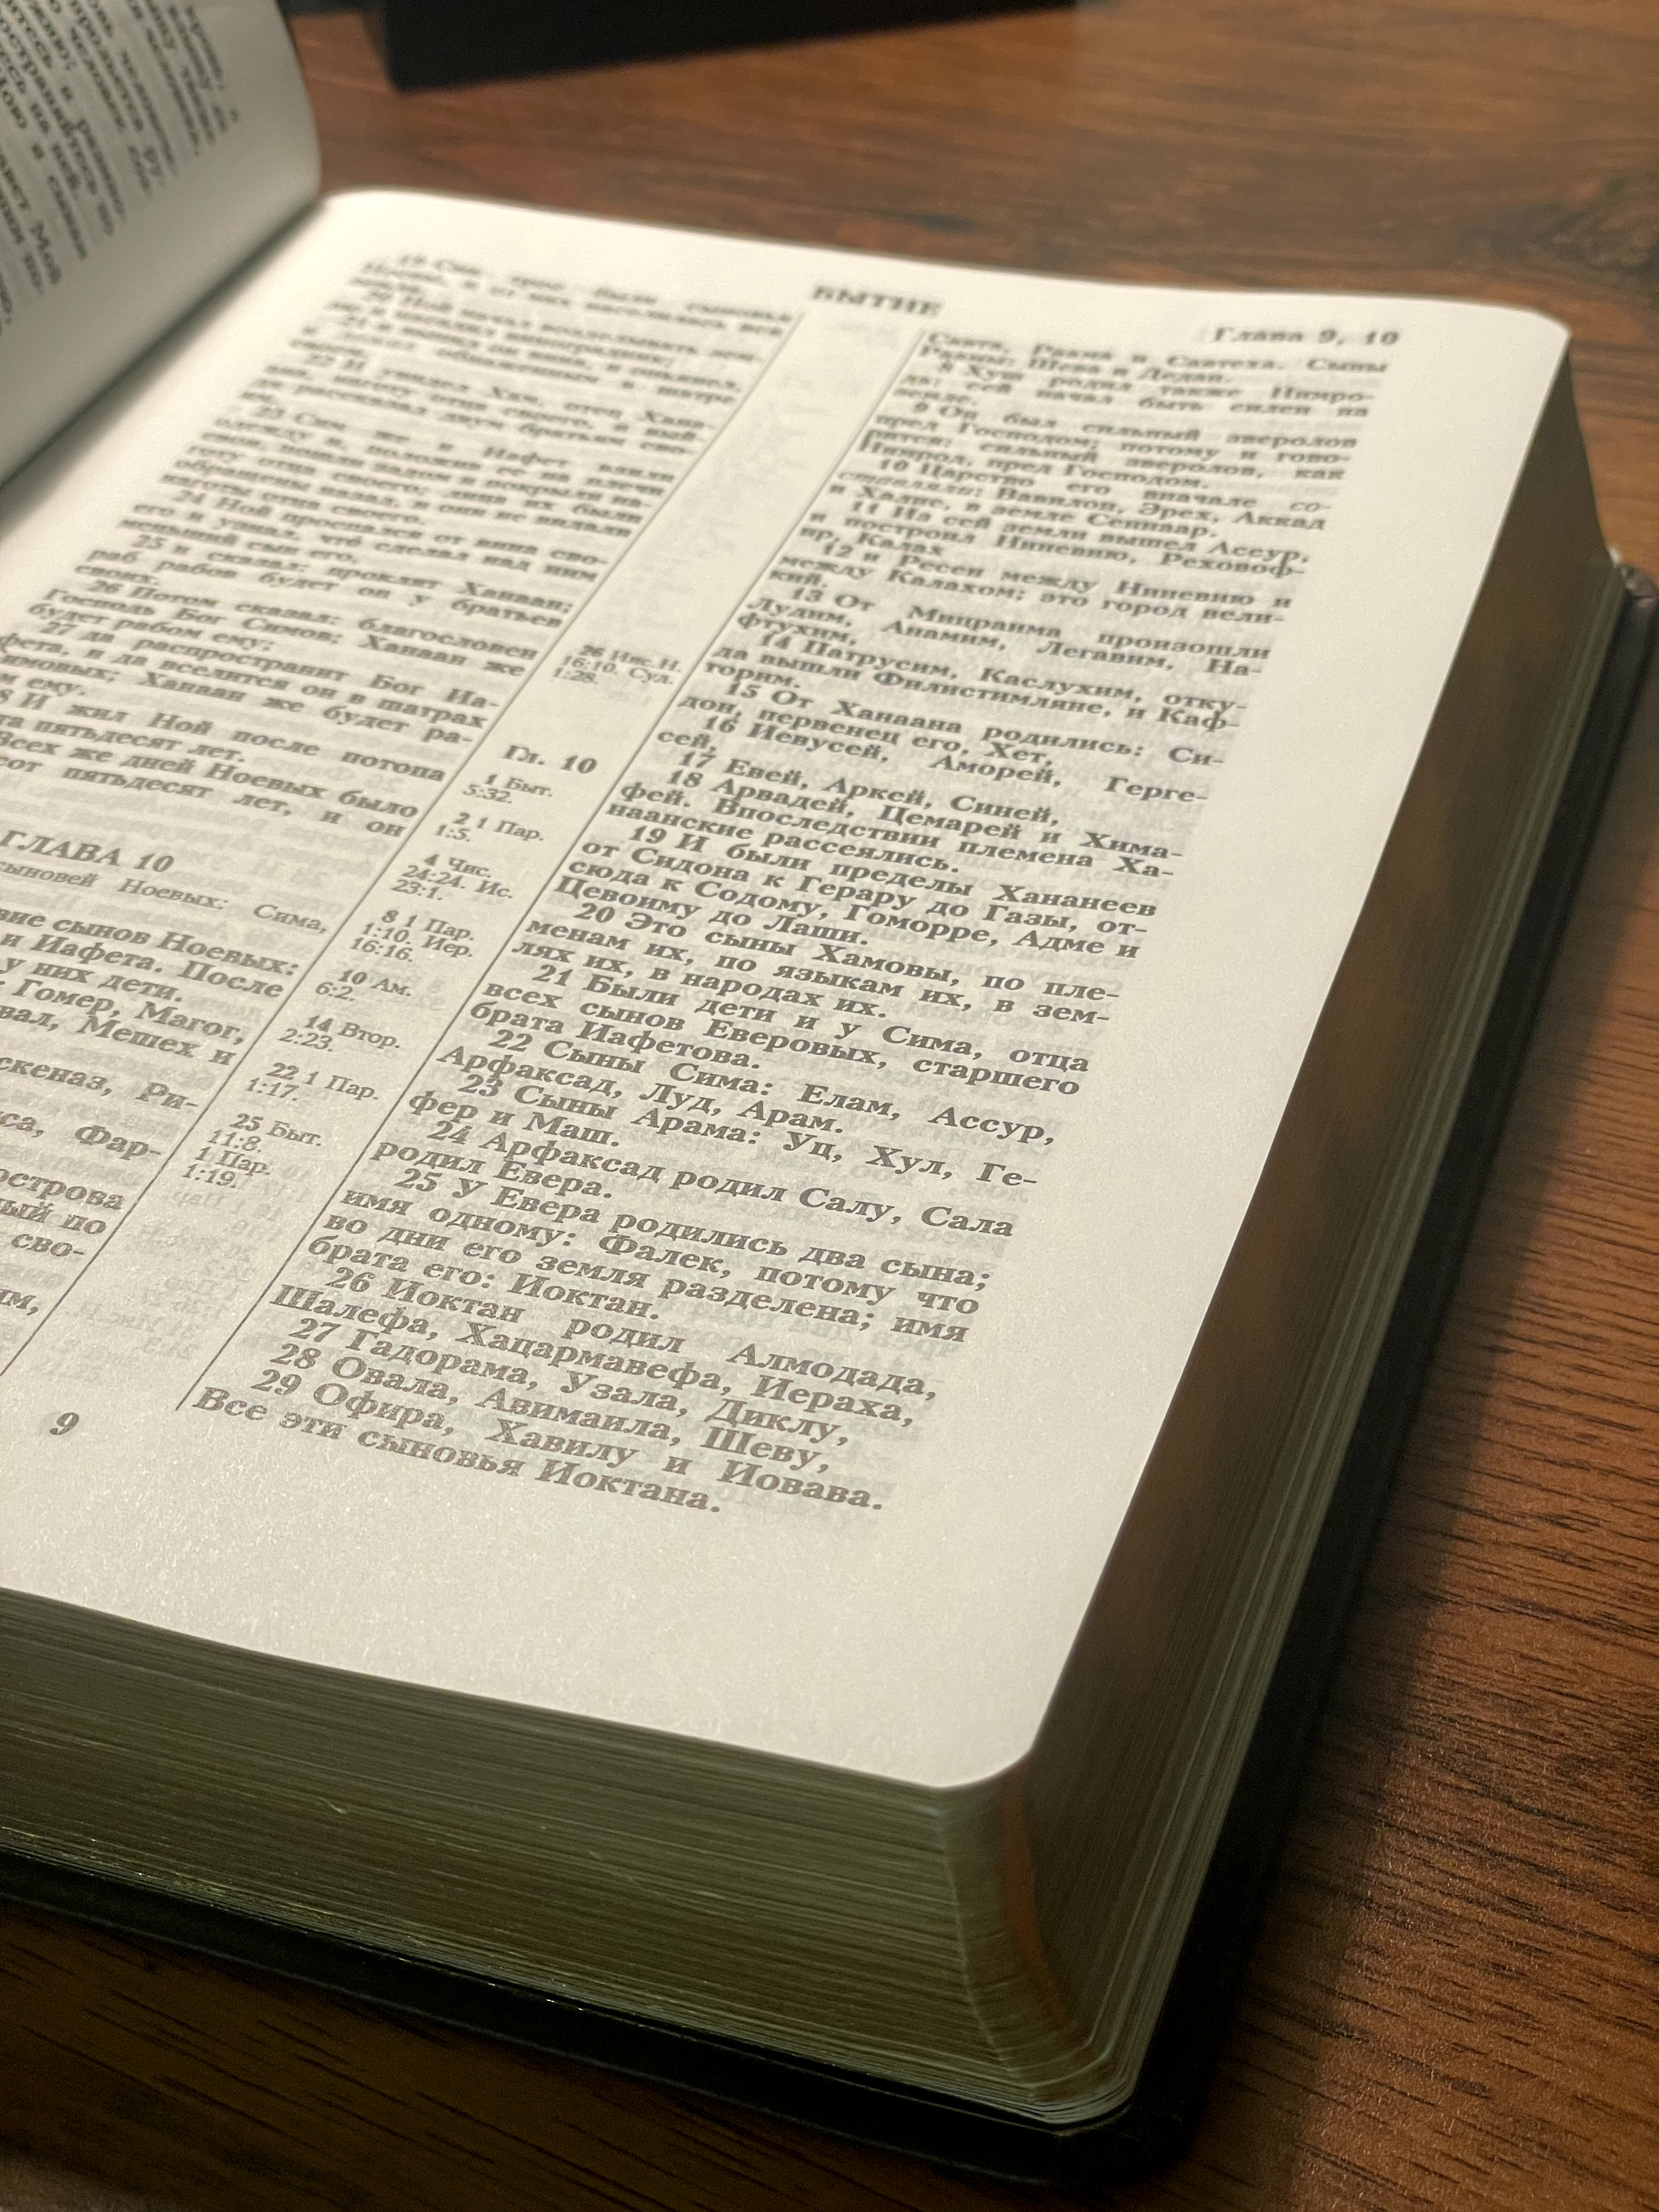 БЫТИЕ
Глава 9, 10
19 Сии трое были сыновья
Ноевы, и от них населилась вся
земля.
20 Ной начал возделывать зем-
лю и насадил виноградник;
21 и выпил он вина, и опьянел,
и лежал обнаженным в шатре
своем.
22 И увидел Хам, отец Хана-
ана, наготу отца своего, и вый-
дя рассказал двум братьям сво-
им.
23 Сим же и Иафет взяли
одежду и, положив ее на плечи
свои, пошли задом и покрыли на-
готу отца своего; лица их были
обращены назад, и они не видали
наготы отца своего.
24 Ной проспался от вина сво-
его и узнал, что́ сделал над ним
меньший сын его,
25 и сказал: проклят Ханаан;
раб рабов будет он у братьев
своих.
26 Потом сказал: благословен
Господь Бог Симов; Ханаан же
будет рабом ему;
27 да распространит Бог Иа-
фета, и да вселится он в шатрах
Симовых; Ханаан же будет ра-
ему.
И жил Ной после потопа
пятьдесят лет.
Всех же дней Ноевых было
пятьдесят лет, и он
ГЛАВА 10
сыновей Ноевых: Сима,
сынов Ноевых:
и Иафета. После
у них дети.
Гомер, Магог,
Мешех и
Ри-
Фар-
острова
по
сво-
9
26 Иис.Н.
16:10. Суд.
1:28.
Гл. 10
1 Быт.
5:32.
2 1 Пар.
1:5.
4 Чис.
24:24. Ис.
23:1.
8 1 Пар.
1:10. Иер.
16:16.
10 Ам.
6:2.
14 Втор.
2:23.
22 1 Пар.
1:17.
25 Быт.
11:8.
1 Пар.
1:19.
Савта, Раама и Савтеха. Сыны
Раамы: Шева и Дедан.
8 Хуш родил также Нимро-
да: сей начал быть силен на
земле.
9 Он был сильный зверолов
пред Господом; потому и гово-
рится: сильный зверолов, как
Нимрод, пред Господом.
10 Царство его вначале со-
ставляли: Вавилон, Эрех, Аккад
и Халне, в земле Сеннаар.
11 Из сей земли вышел Ассур,
и построил Ниневию, Реховоф-
ир, Калах
12 и Ресен между Ниневию и
между Калахом; это город вели-
кий.
13 От Мицраима произошли
Лудим, Анамим, Легавим, На-
фтухим,
14 Патрусим, Каслухим, отку-
да вышли Филистимляне, и Каф-
торим.
15 От Ханаана родились: Си-
дон, первенец его, Хет,
16 Иевусей, Аморей, Герге-
сей,
17 Евей, Аркей, Синей,
18 Арвадей, Цемарей и Хима-
фей. Впоследствии племена Ха-
наанские рассеялись.
19 И были пределы Хананеев
от Сидона к Герару до Газы, от-
сюда к Содому, Гоморре, Адме и
Цевоиму до Лаши.
20 Это сыны Хамовы, по пле-
менам их, по языкам их, в зем-
лях их, в народах их.
21 Были дети и у Сима, отца
всех сынов Еверовых, старшего
брата Иафетова.
22 Сыны Сима: Елам, Ассур,
Арфаксад, Луд, Арам.
23 Сыны Арама: Уц, Хул, Ге-
фер и Маш.
24 Арфаксад родил Салу, Сала
родил Евера.
25 У Евера родились два сына;
имя одному: Фалек, потому что
во дни его земля разделена; имя
брата его: Иоктан.
26 Иоктан родил Алмодада,
Шалефа, Хацармавефа, Иераха,
27 Гадорама, Узала, Диклу,
28 Овала, Авимаила, Шеву,
29 Офира, Хавилу и Иовава.
Все эти сыновья Иоктана.